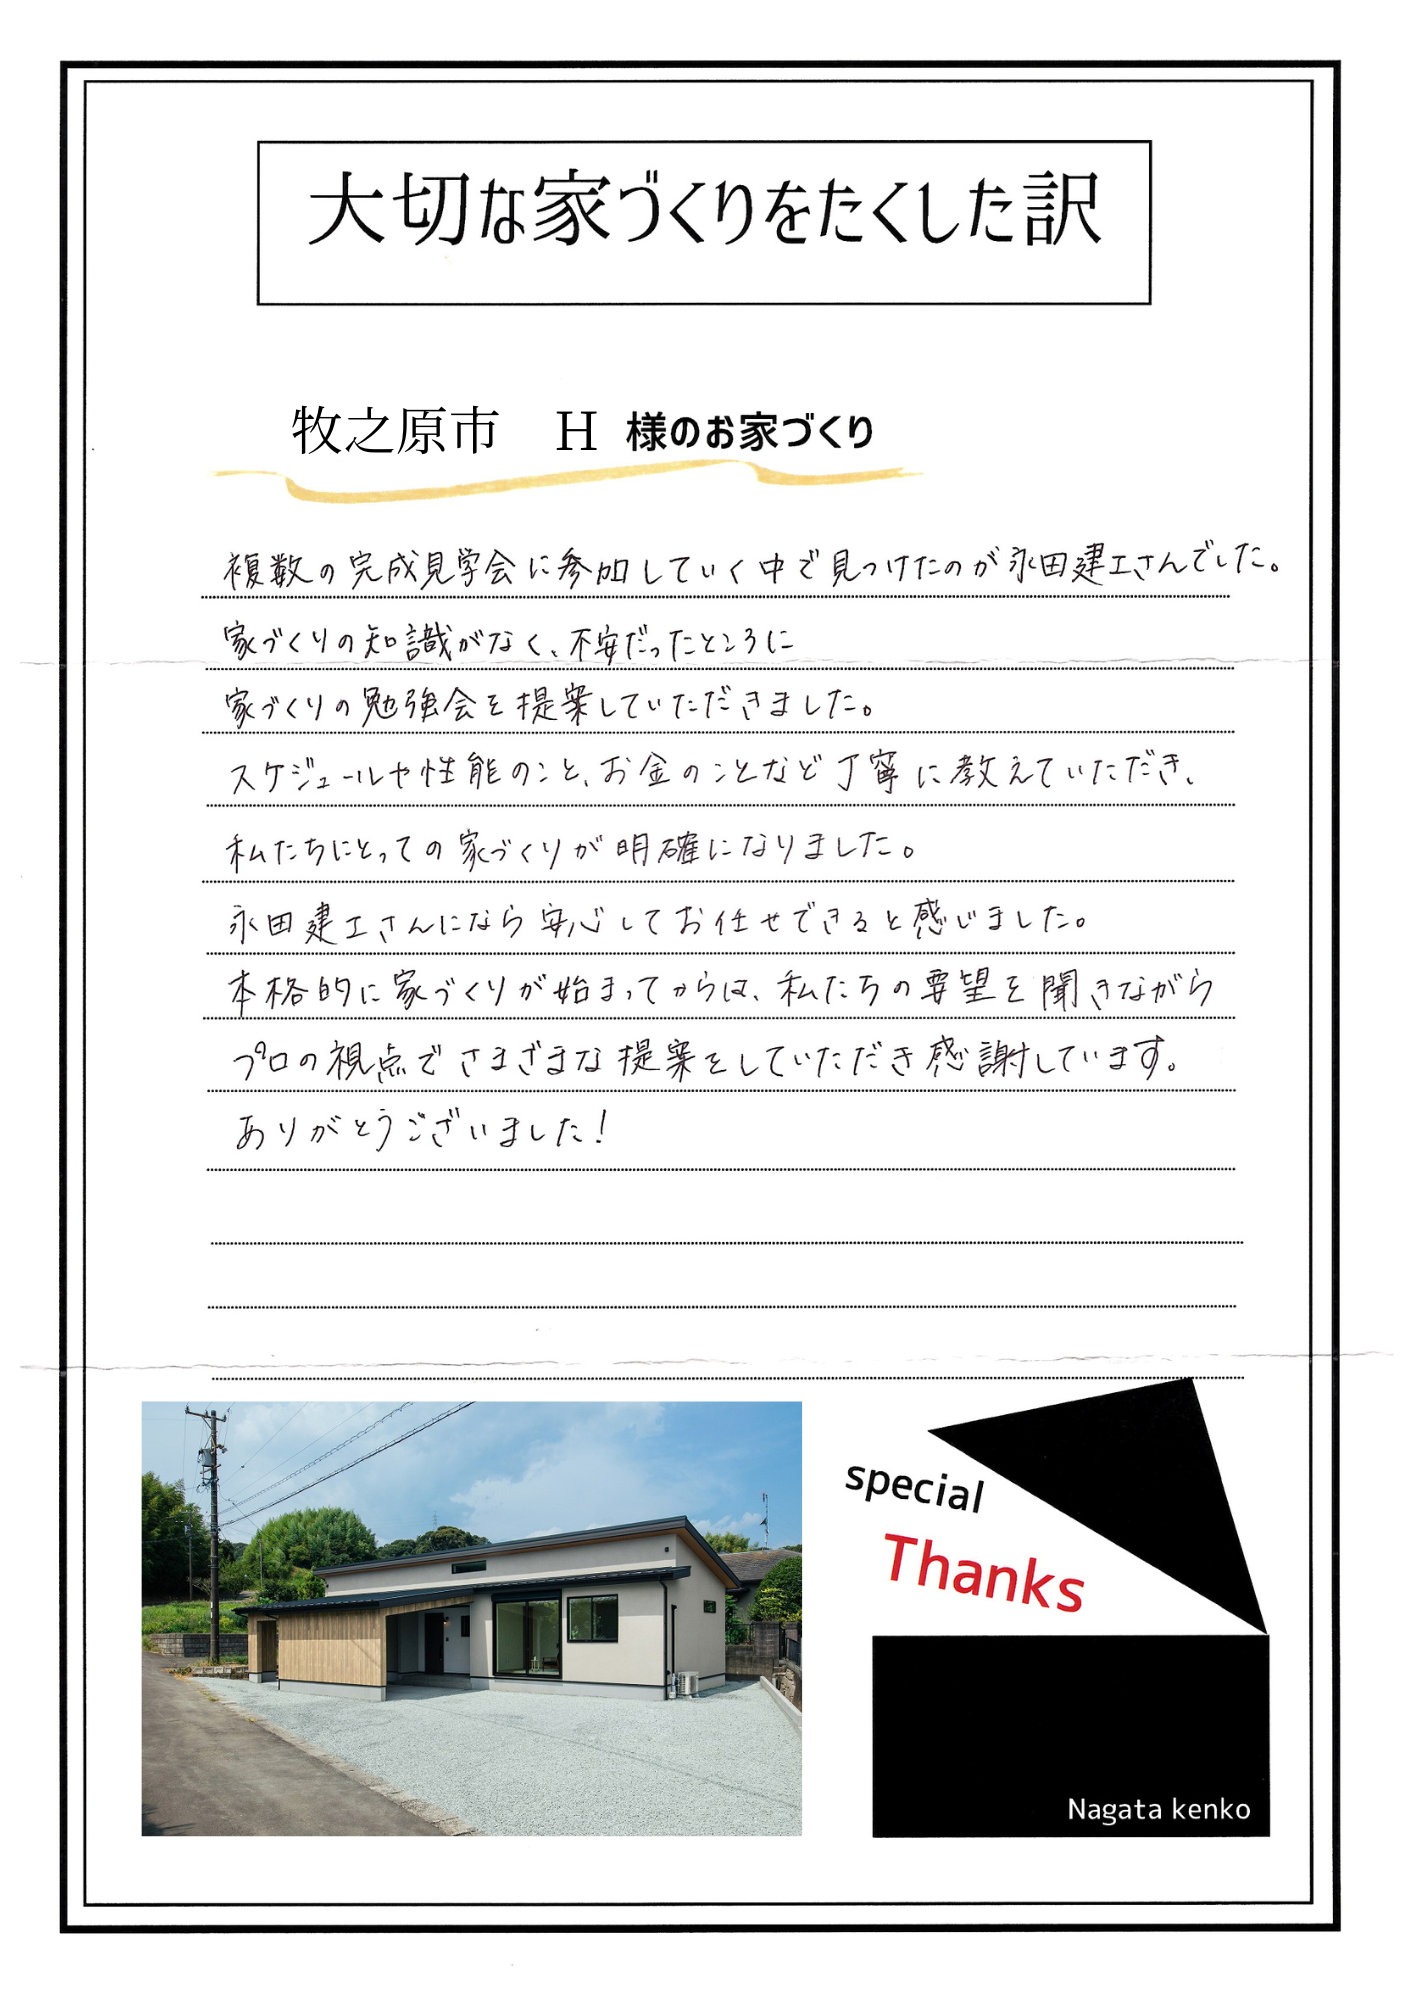 大切な家づくりをたくした訳
牧之原市　H 様のお家づくり
複数の完成見学会に参加していく中で見つけたのが永田建工さんでした。
家づくりの知識がなく、不安だったところに
家づくりの勉強会を提案していただきました。
スケジュールや性能のこと、お金のことなど丁寧に教えていただき、
私たちにとっての家づくりが明確になりました。
永田建工さんになら安心してお任せできると感じました。
本格的に家づくりが始まってからは、私たちの要望を聞きながら
プロの視点でさまざまな提案をしていただき感謝しています。
ありがとうございました！
special
Thanks
Nagata kenko